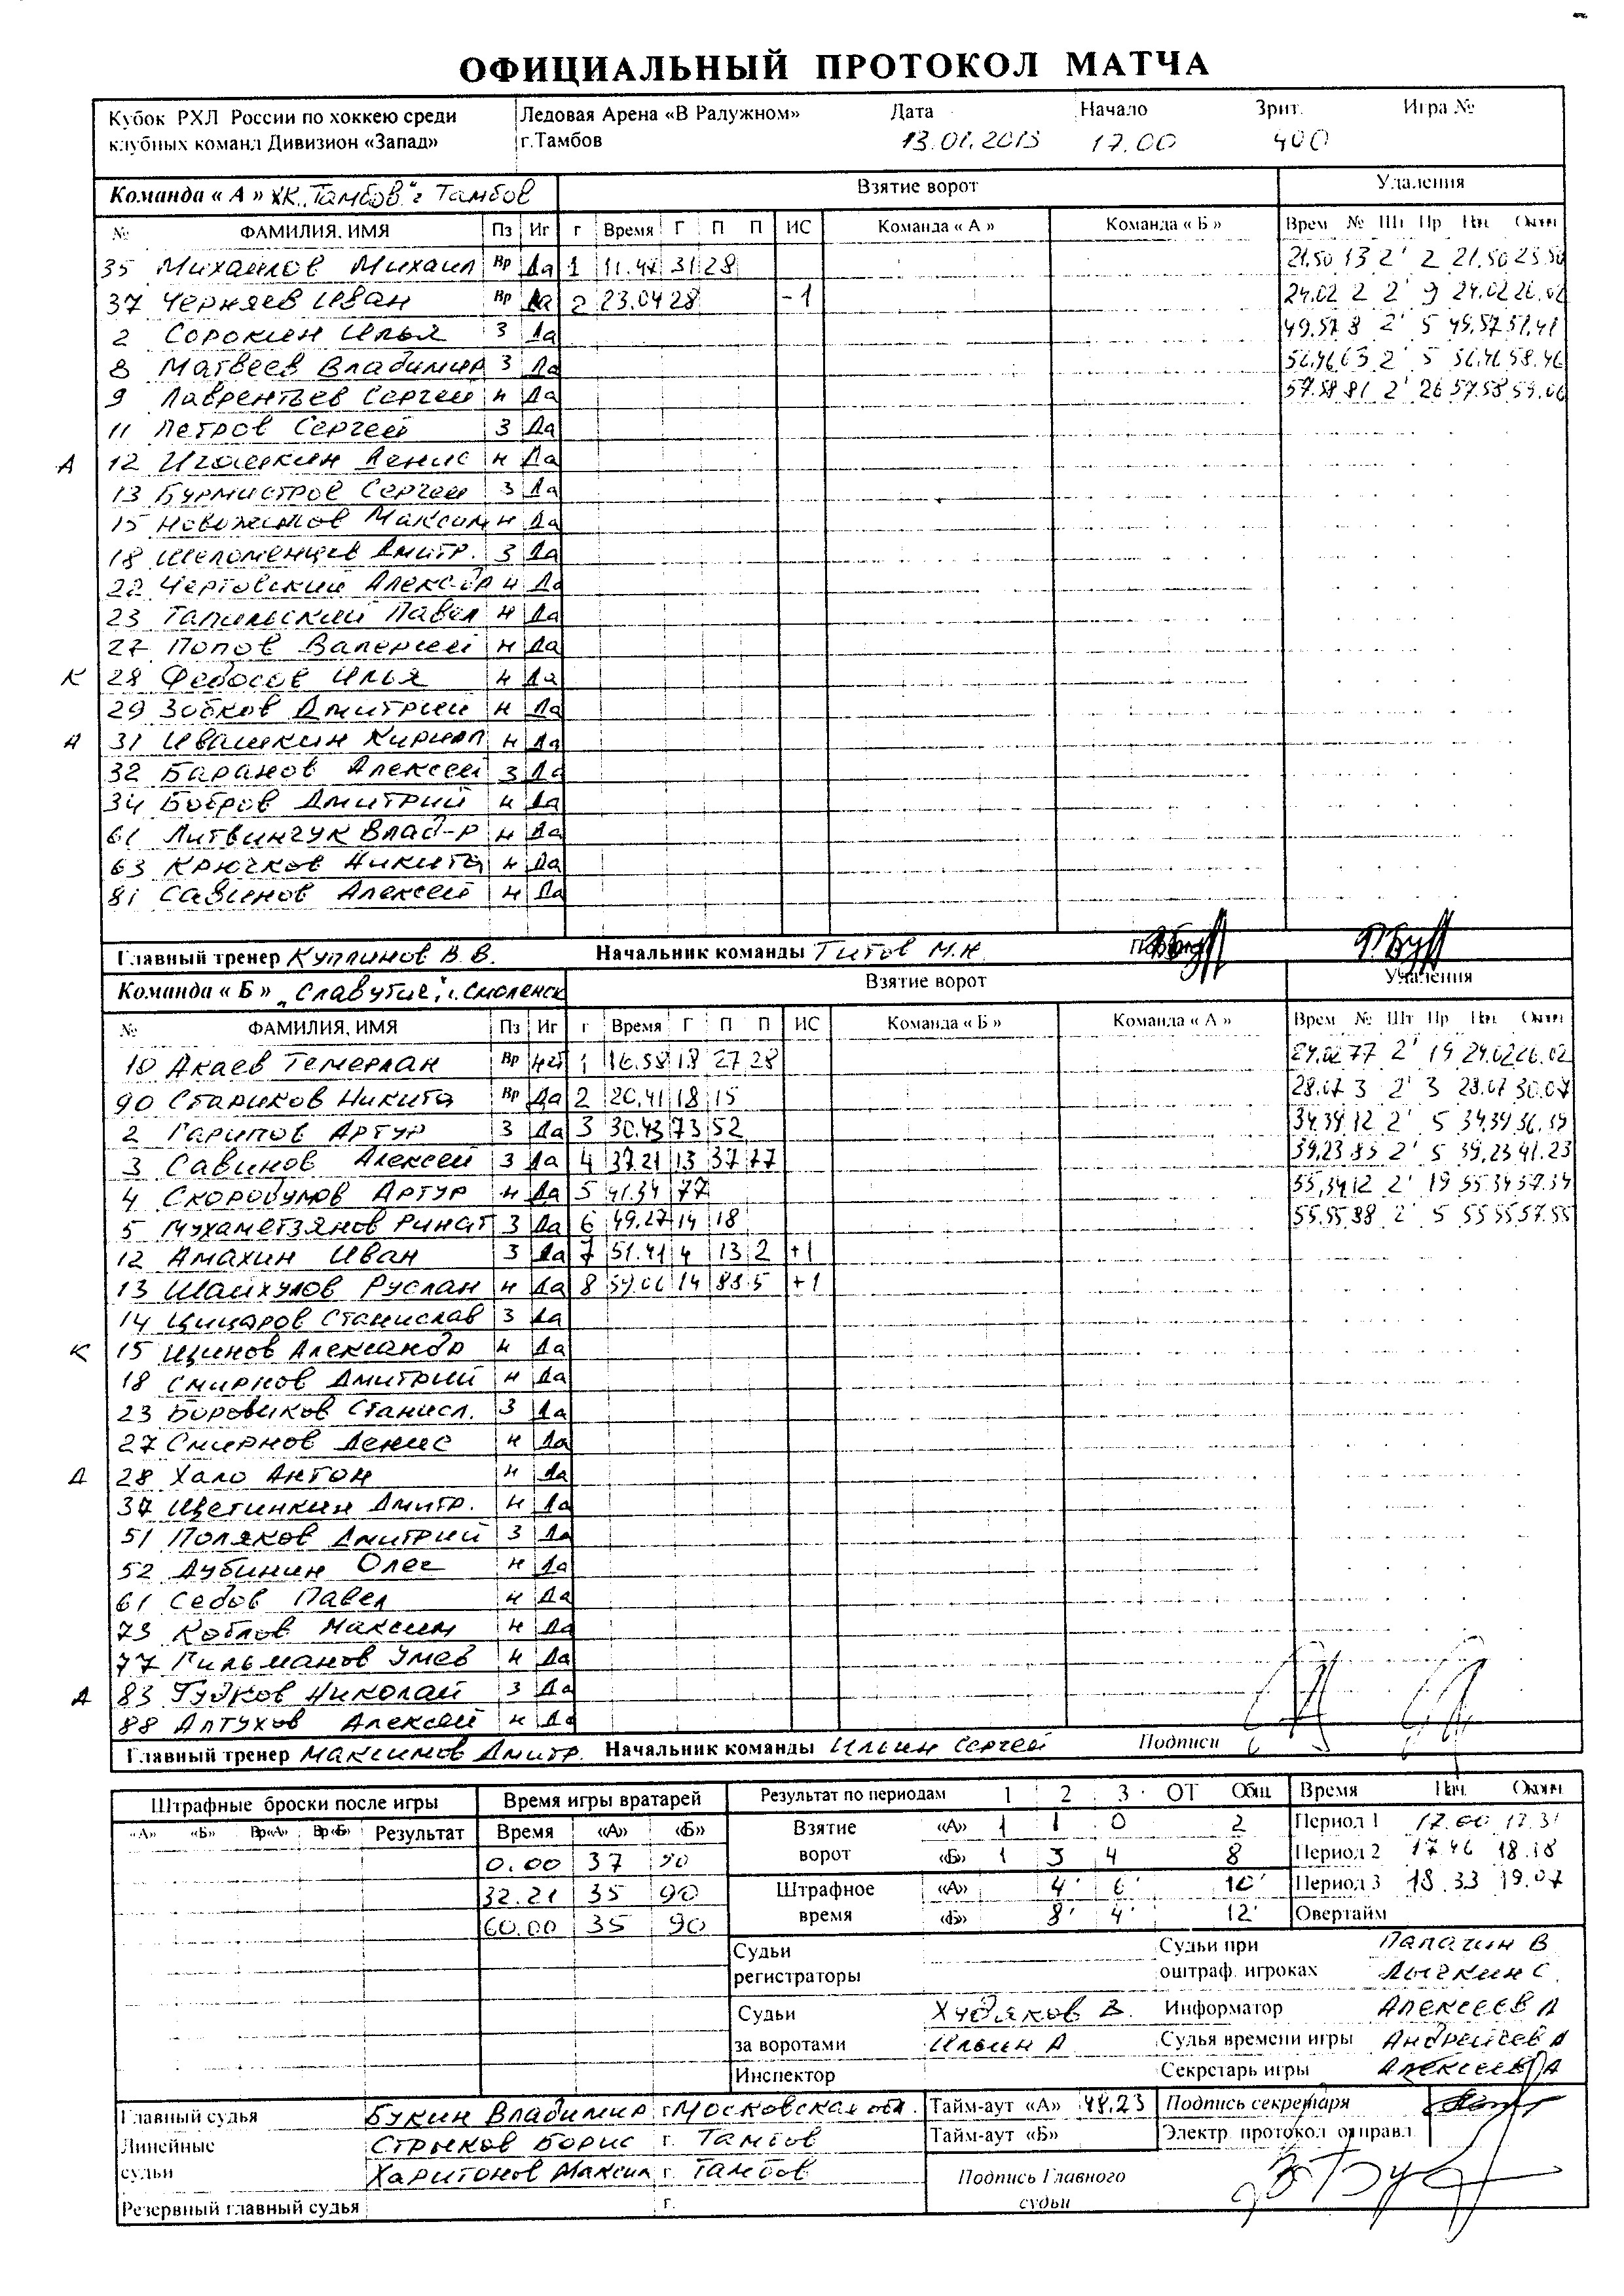 ОФИЦИАЛЬНЫЙ ПРОТОКОЛ МАТЧА
Кубок РХЛ России по хоккею среди клубных команд Дивизион «Запад»
Ледовая Арена «В Радужном» г.Тамбов
Дата 13.01.2013 Начало 17.00 Зрит. 400 Игра №
Команда « А » ХК "Тамбов" г Тамбов Взятие ворот Удаления
№ ФАМИЛИЯ, ИМЯ Пз Иг г Время Г П П ИС Команда « А » Команда « Б » Врем № Шт Пр Нач. Оконч
35 Михайлов Михаил Вр Да 1 11.47 31 28 21.50 13 2' 2 21.50 23.50
37 Черняев Иван Вр Да 2 23.04 28 -1 24.02 2 2' 9 24.02 26.02
2 Сорокин Илья З Да 49.57 8 2' 5 49.57 51.41
8 Матвеев Владимир З Да 56.46 63 2' 5 56.46 58.46
9 Лаврентьев Сергей Н Да 57.58 81 2' 26 57.58 59.06
11 Петров Сергей З Да
А 12 Игошкин Денис Н Да
13 Бурмистров Сергей З Да
15 Новожилов Максим Н Да
18 Шеломенцев Дмитр. З Да
22 Чертовский Алекс-др Н Да
23 Тапильский Павел Н Да
27 Попов Валерий Н Да
К 28 Федосов Илья Н Да
29 Зобков Дмитрий Н Да
А 31 Ивашкин Кирилл Н Да
32 Баранов Алексей З Да
34 Бобров Дмитрий Н Да
61 Литвинчук Влад-р Н Да
63 Крючков Никита Н Да
81 Савинов Алексей Н Да
Главный тренер Куплинов В.В. Начальник команды Титов М.Н.
Команда « Б » "Славутич", г. Смоленск Взятие ворот Удаления
№ ФАМИЛИЯ, ИМЯ Пз Иг г Время Г П П ИС Команда « Б » Команда « А » Врем № Шт Пр Нач. Оконч
10 Акаев Темерлан Вр нет 1 16.58 18 27 28 24.02 77 2' 19 24.02 26.02
90 Стариков Никита Вр Да 2 20.41 18 15 28.07 3 2' 3 28.07 30.07
2 Гарипов Артур З Да 3 30.43 73 52 34.39 12 2' 5 34.39 36.39
3 Савинов Алексей З Да 4 37.21 13 37 77 39.23 83 2' 5 39.23 41.23
4 Скоробулов Артур Н Да 5 41.34 77 55.34 12 2' 19 55.34 57.34
5 Мухаметзянов Ринат З Да 6 49.27 14 18 55.55 88 2' 5 55.55 57.55
12 Амахин Иван З Да 7 51.41 4 13 2 +1
13 Шайхулов Руслан Н Да 8 59.06 14 88 5 +1
14 Цицаров Станислав З Да
К 15 Щинов Александр Н Да
18 Смирнов Дмитрий Н Да
23 Боровиков Станисл. З Да
27 Смирнов Денис Н Да
А 28 Хало Антон Н Да
37 Щетинкин Дмитр. Н Да
51 Поляков Дмитрий З Да
52 Дубинин Олег Н Да
61 Седов Павел Н Да
73 Коблов Максим Н Да
77 Гильманов Н Да
А 83 Гудков Николай З Да
88 Алтухов Алексей Н Да
Главный тренер Максимов Дмитр. Начальник команды Ильин Сергей Подписи
Штрафные броски после игры Время игры вратарей Результат по периодам 1 2 3 ОТ Общ Время Нач. Оконч
«А» «Б» Вр«А» Вр«Б» Результат Время «А» «Б» Взятие ворот «А» 1 1 0 2 Период 1 17.00 17.31
0.00 37 90 «Б» 1 3 4 8 Период 2 17.46 18.18
32.21 35 90 Штрафное время «А» 4' 6' 10' Период 3 18.33 19.07
60.00 35 90 «Б» 8' 4' 12' Овертайм
Судьи регистраторы Судьи при оштраф. игроках Папагин В Лычкин С.
Судьи Худяков В. Информатор Алексеев А
за воротами Ильин А Судья времени игры Андрейчев А
Инспектор Секретарь игры Алексеев А
Главный судья Букин Владимир г. Московская обл. Тайм-аут «А» 48.23 Подпись секретаря
Линейные Стрыков Борис г. Тамбов Тайм-аут «Б» Электр. протокол отправл.
судьи Харитонов Максим г. Тамбов Подпись Главного судьи
Резервный главный судья г.